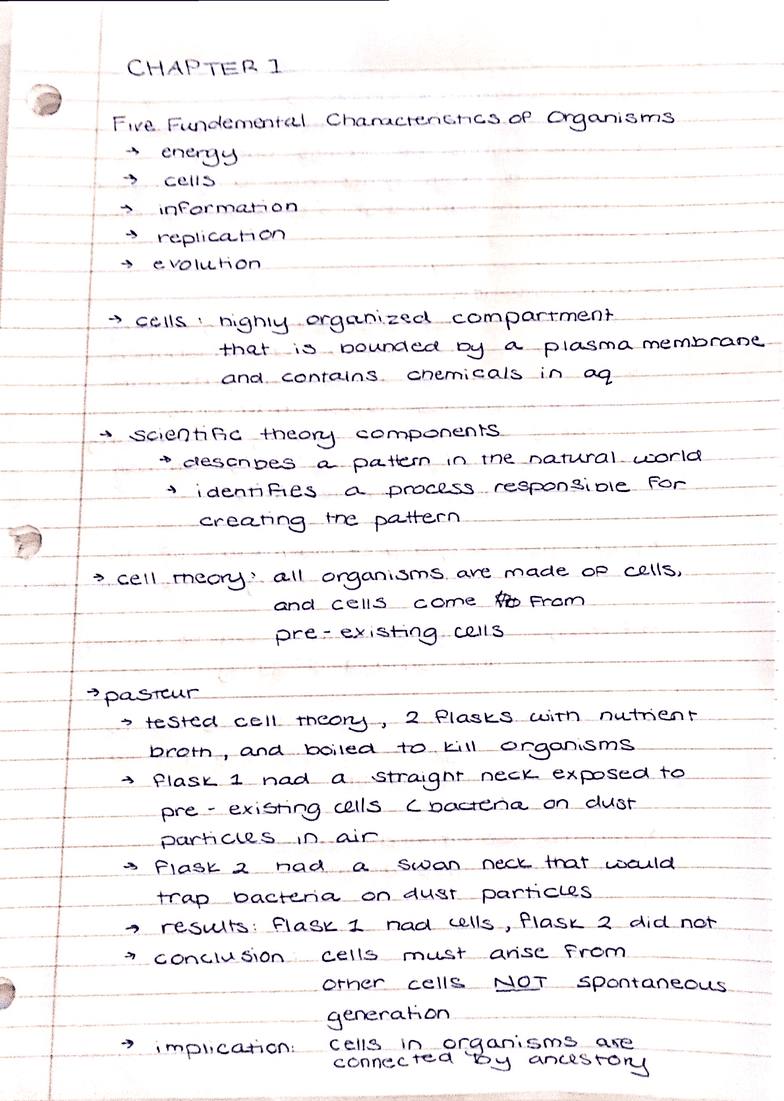 CHAPTER 1
Five Fundemental Characteristics of Organisms
→ energy
→ cells
→ information
→ replication
→ evolution
→ cells: highly organized compartment
that is bounded by a plasma membrane
and contains chemicals in aq
→ scientific theory components
→ describes a pattern in the natural world
→ identifies a process responsible for
creating the pattern
→ cell theory: all organisms are made of cells,
and cells come from
pre-existing cells
→ pasteur
→ tested cell theory, 2 flasks with nutrient
broth, and boiled to kill organisms
→ flask 1 had a straight neck exposed to
pre-existing cells (bacteria on dust
particles in air
→ flask 2 had a swan neck that would
trap bacteria on dust particles
→ results: flask 1 had cells, flask 2 did not
→ conclusion cells must arise from
other cells NOT spontaneous
generation
→ implication: cells in organisms are
connected by ancestory